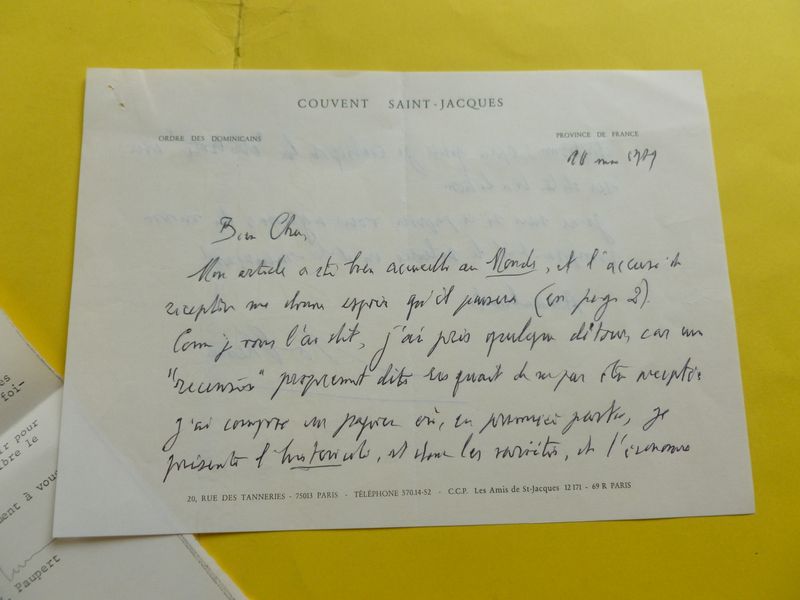 COUVENT SAINT-JACQUES
ORDRE DES DOMINICAINS
PROVINCE DE FRANCE
Bien Cher,
Mon article a été bien accueilli au Monde, et l'accusé de
réception me donne espoir qu'il passera (en page 2).
Comme je vous l'ai dit, j'ai pris quelque détour, car un
"recension" proprement dite risquait de ne pas être acceptée
J'ai composé un papier où, en première partie, je
présente l' et donc les et l'économie
20, RUE DES TANNERIES - 75013 PARIS · TÉLÉPHONE 370.14-52 · C.C.P. Les Amis de St-Jacques 12 171 - 69 R PARIS
es
foi-
ir pour
bre le
ment à vous
. Paupert